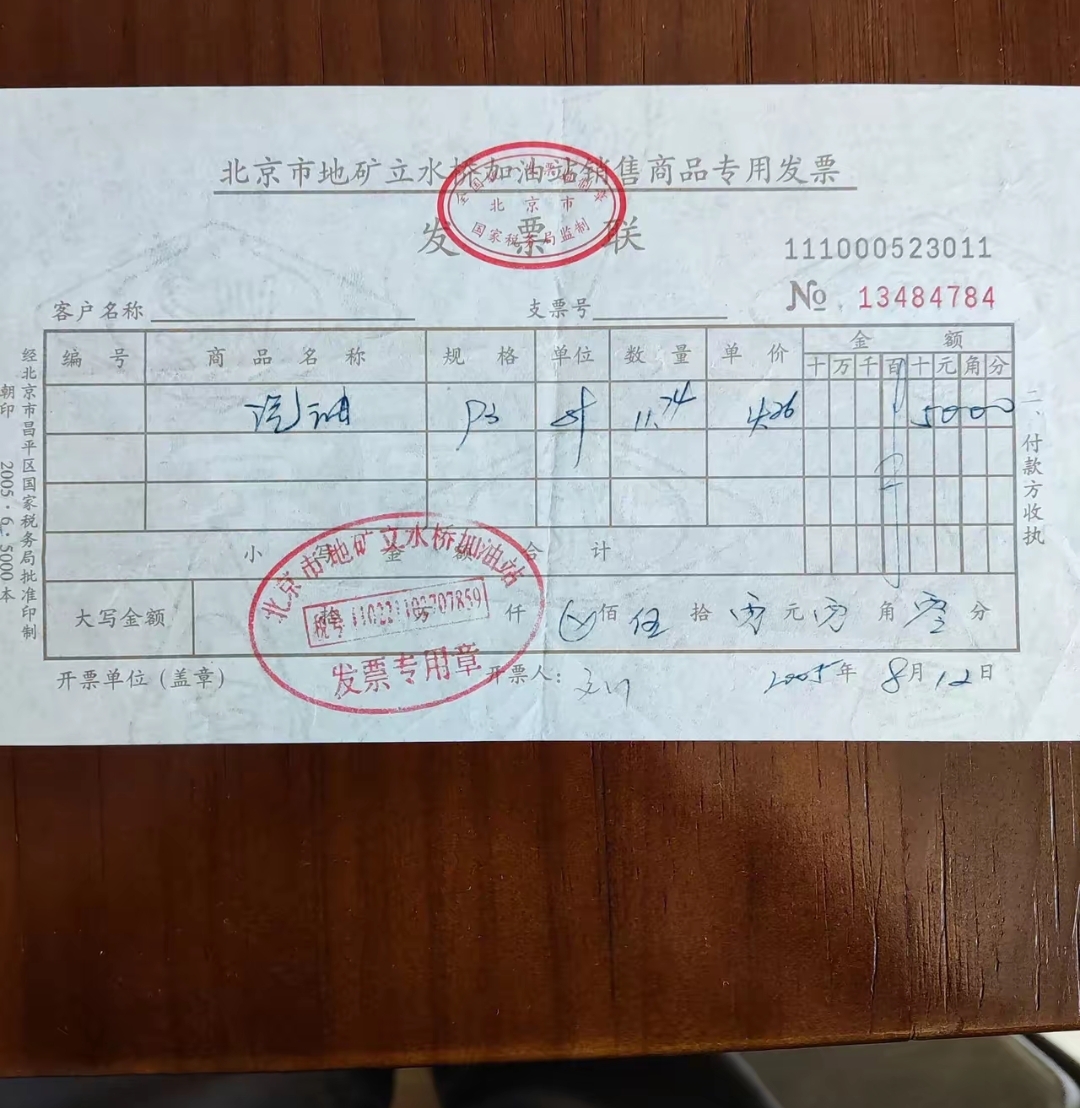 北京市地矿立水桥加油站销售商品专用发票
发票联
北京市
国家税务局监制
111000523011
No. 13484784
客户名称 支票号
编号 商品名称 规格 单位 数量 单价 金额
十万千百十元角分
汽油 93 升 11.74 4.26 5000
小写金额合计
大写金额 仟 佰 伍 拾 零 元 零 角 零 分
北京市地矿立水桥加油站
税号 110221102707859
发票专用章
开票单位(盖章) 开票人: 2005年 8月 12日
二、付款方收执
经北京市昌平区国家税务局批准印制
朝印 2005·6·5000本